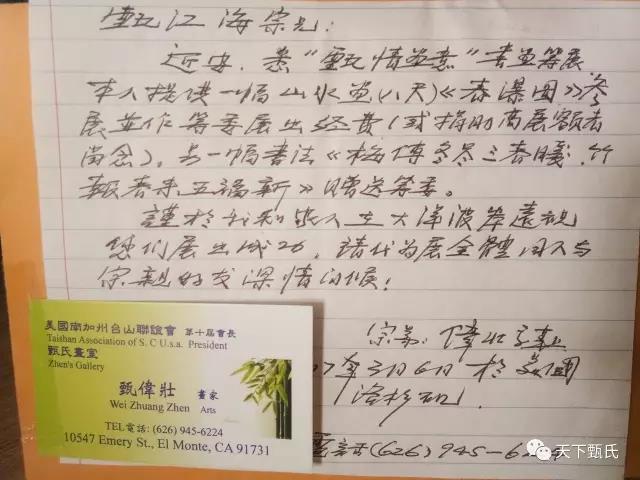 甄江海宗兄:
近安. 悉“甄情画意”书画筹展
本人提供一幅山水画(八尺)《春瀑图》参
展並作筹委展出经费(或捐助商展额者
尚念). 另一幅书法《梅傳冬尽三春暖.竹
報春来五福新》贈送筹委。
謹於我和家人在大洋彼岸遠祝
您们展出成功, 請代为展全體同人与
宗親好友深情问候!
宗弟: 偉壮
年3月6日 於 美國
洛杉矶.
電話(626)945-6
美國南加州台山聯誼會 第十屆會長
Taishan Association of S. C U.s.a. President
甄氏畫室
Zhen's Gallery
甄偉壯 畫家
Wei Zhuang Zhen Arts
TEL電話: (626) 945-6224
10547 Emery St., El Monte, CA 91731
天下甄氏